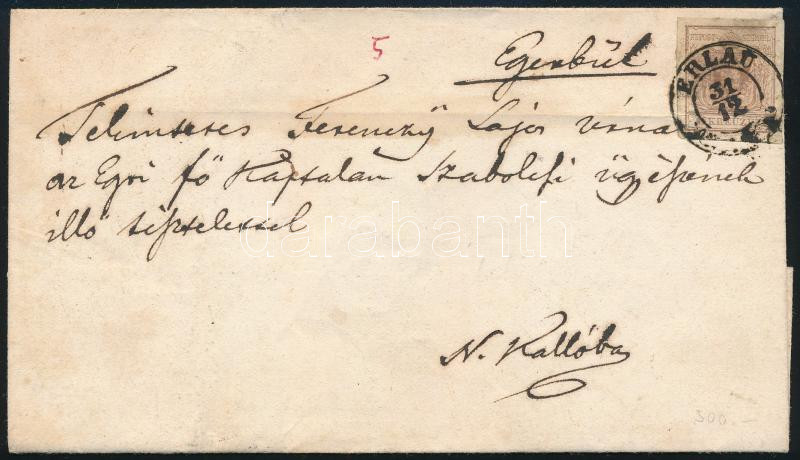 5
Egerbül
ERLAU
31
12
Tekintetes Ferenczy Lajos úrnak
az Egri fő Káptalan Szabolcsi ügyészének
illő tisztelettel
darabanth
N. Kallóba
300.—